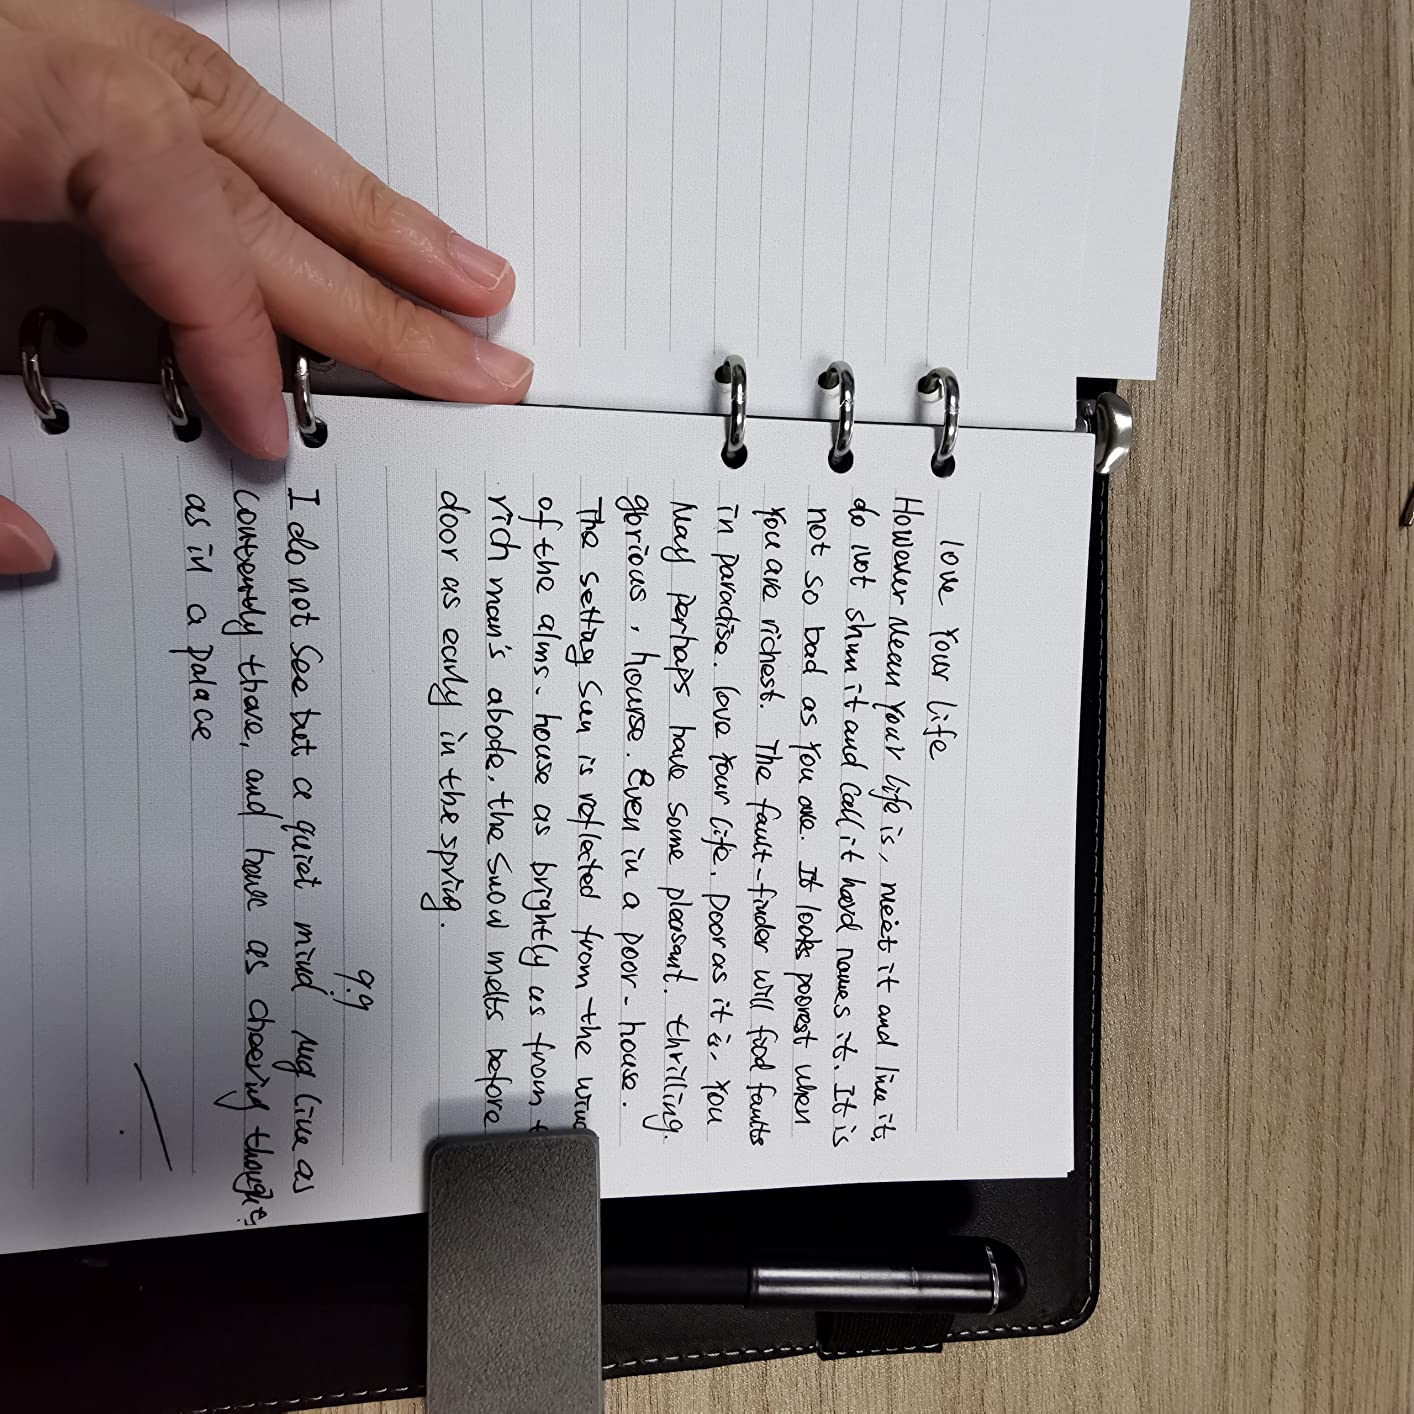 love Your life
However mean your life is, meet it and live it,
do not shun it and call it hard names it. It is
not so bad as You are. It looks poorest when
You are richest. The fault-finder will find faults
in paradise. love Your life, poor as it is. You
May perhaps have some pleasant. thrilling.
glorious, hourse. Even in a poor-house.
The setting Sun is reflected from the
of the alms. house as brightly as from
rich man's abode, the Snow melts before
door as early in the spring.
9.9
I do not See but a quiet mind live as
there, and have as cheering thoughts
as in a palace